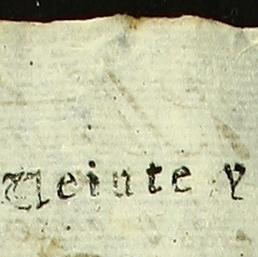 Veinte y